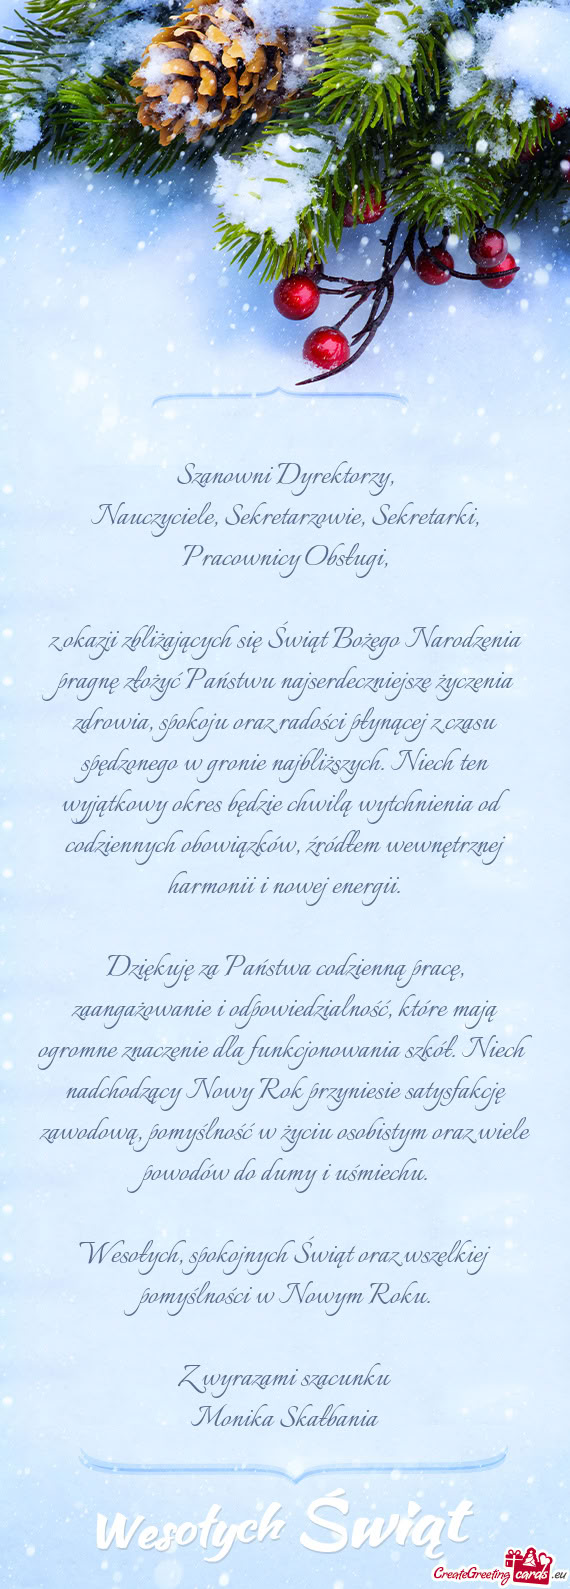 Szanowni Dyrektorzy,
Nauczyciele, Sekretarzowie, Sekretarki,
Pracownicy Obsługi,
z okazji zbliżających się Świąt Bożego Narodzenia
pragnę złożyć Państwu najserdeczniejsze życzenia
zdrowia, spokoju oraz radości płynącej z czasu
spędzonego w gronie najbliższych. Niech ten
wyjątkowy okres będzie chwilą wytchnienia od
codziennych obowiązków, źródłem wewnętrznej
harmonii i nowej energii.
Dziękuję za Państwa codzienną pracę,
zaangażowanie i odpowiedzialność, które mają
ogromne znaczenie dla funkcjonowania szkół. Niech
nadchodzący Nowy Rok przyniesie satysfakcję
zawodową, pomyślność w życiu osobistym oraz wiele
powodów do dumy i uśmiechu.
Wesołych, spokojnych Świąt oraz wszelkiej
pomyślności w Nowym Roku.
Z wyrazami szacunku
Monika Skałbania
Wesołych Świąt
CreateGreetingcards.eu